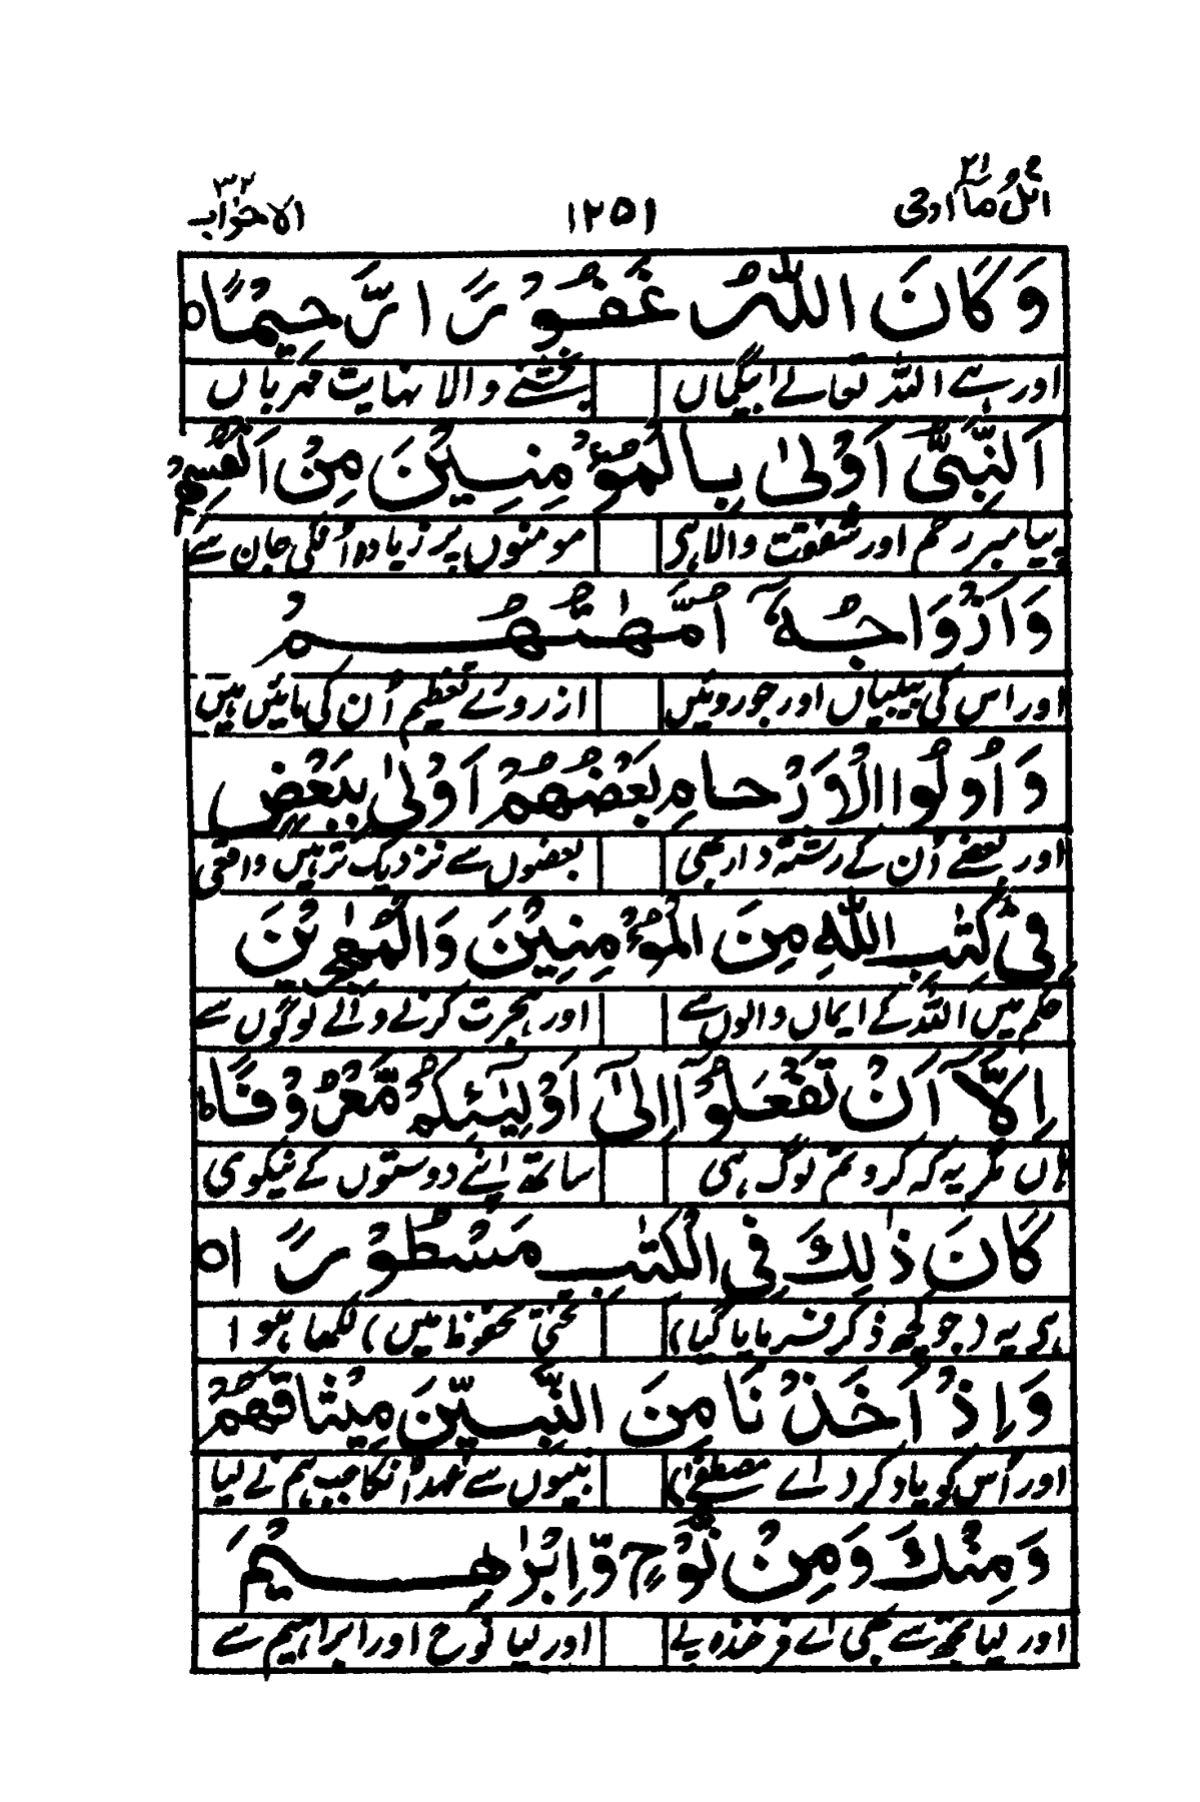 اتل مآ اوحی ٢١ ١٢٥١ الاحزاب ٣٣
وَكَانَ اللّٰهُ غَفُوْرًا رَّحِيْمًا ○
اور ہے اللہ تعالے بیگماں بخشنے والا نہایت مہرباں
اَلنَّبِيُّ اَوْلٰى بِالْمُؤْمِنِيْنَ مِنْ اَنْفُسِهِمْ
پیامبر رحم اور شفقت والا ہی مومنوں پر زیادہ اُنکی جان سے
وَاَزْوَاجُهٗٓ اُمَّهٰتُهُمْ
اور اس کی بیبیاں اور جورویئں ازروئے تعظیم اُن کی مائیں ہیں
وَاُولُوا الْاَرْحَامِ بَعْضُهُمْ اَوْلٰى بِبَعْضٍ
اور بعضے اُن کے رشتہ دار بھی بعضوں سے نزدیک تر ہیں واقعی
فِيْ كِتٰبِ اللّٰهِ مِنَ الْمُؤْمِنِيْنَ وَالْمُهٰجِرِيْنَ
حکم میں اللہ کے ایماں والوں سے اور ہجرت کرنے والے لوگوں سے
اِلَّآ اَنْ تَفْعَلُوْٓا اِلٰٓى اَوْلِيٰٓئِكُمْ مَّعْرُوْفًا ط
ہاں مگر یہ کہ کرو تم لوگ ہی ساتھ اپنے دوستوں کے نیکوی
كَانَ ذٰلِكَ فِي الْكِتٰبِ مَسْطُوْرًا ○
ہی یہ (جو کچھ ذکر فرمایا گیا) تختئ محفوظ میں) لکھا ہوا
وَاِذْ اَخَذْنَا مِنَ النَّبِيّٖنَ مِيْثَاقَهُمْ
اور اُس کو یاد کر (اے مصطفےٰ) نبیوں سے عہد اُنکا جب ہم نے لیا
وَمِنْكَ وَمِنْ نُّوْحٍ وَّاِبْرٰهِيْمَ
اور لیا تجھ سے بھی اے فرخندہ پے اور لیا نوح اور ابراہیم سے